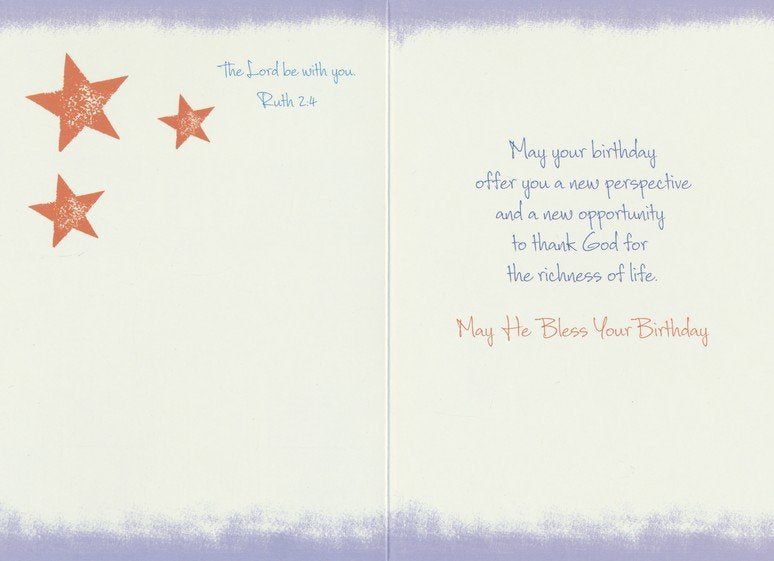 The Lord be with you.
Ruth 2:4
May your birthday
offer you a new perspective
and a new opportunity
to thank God for
the richness of life.
May He Bless Your Birthday